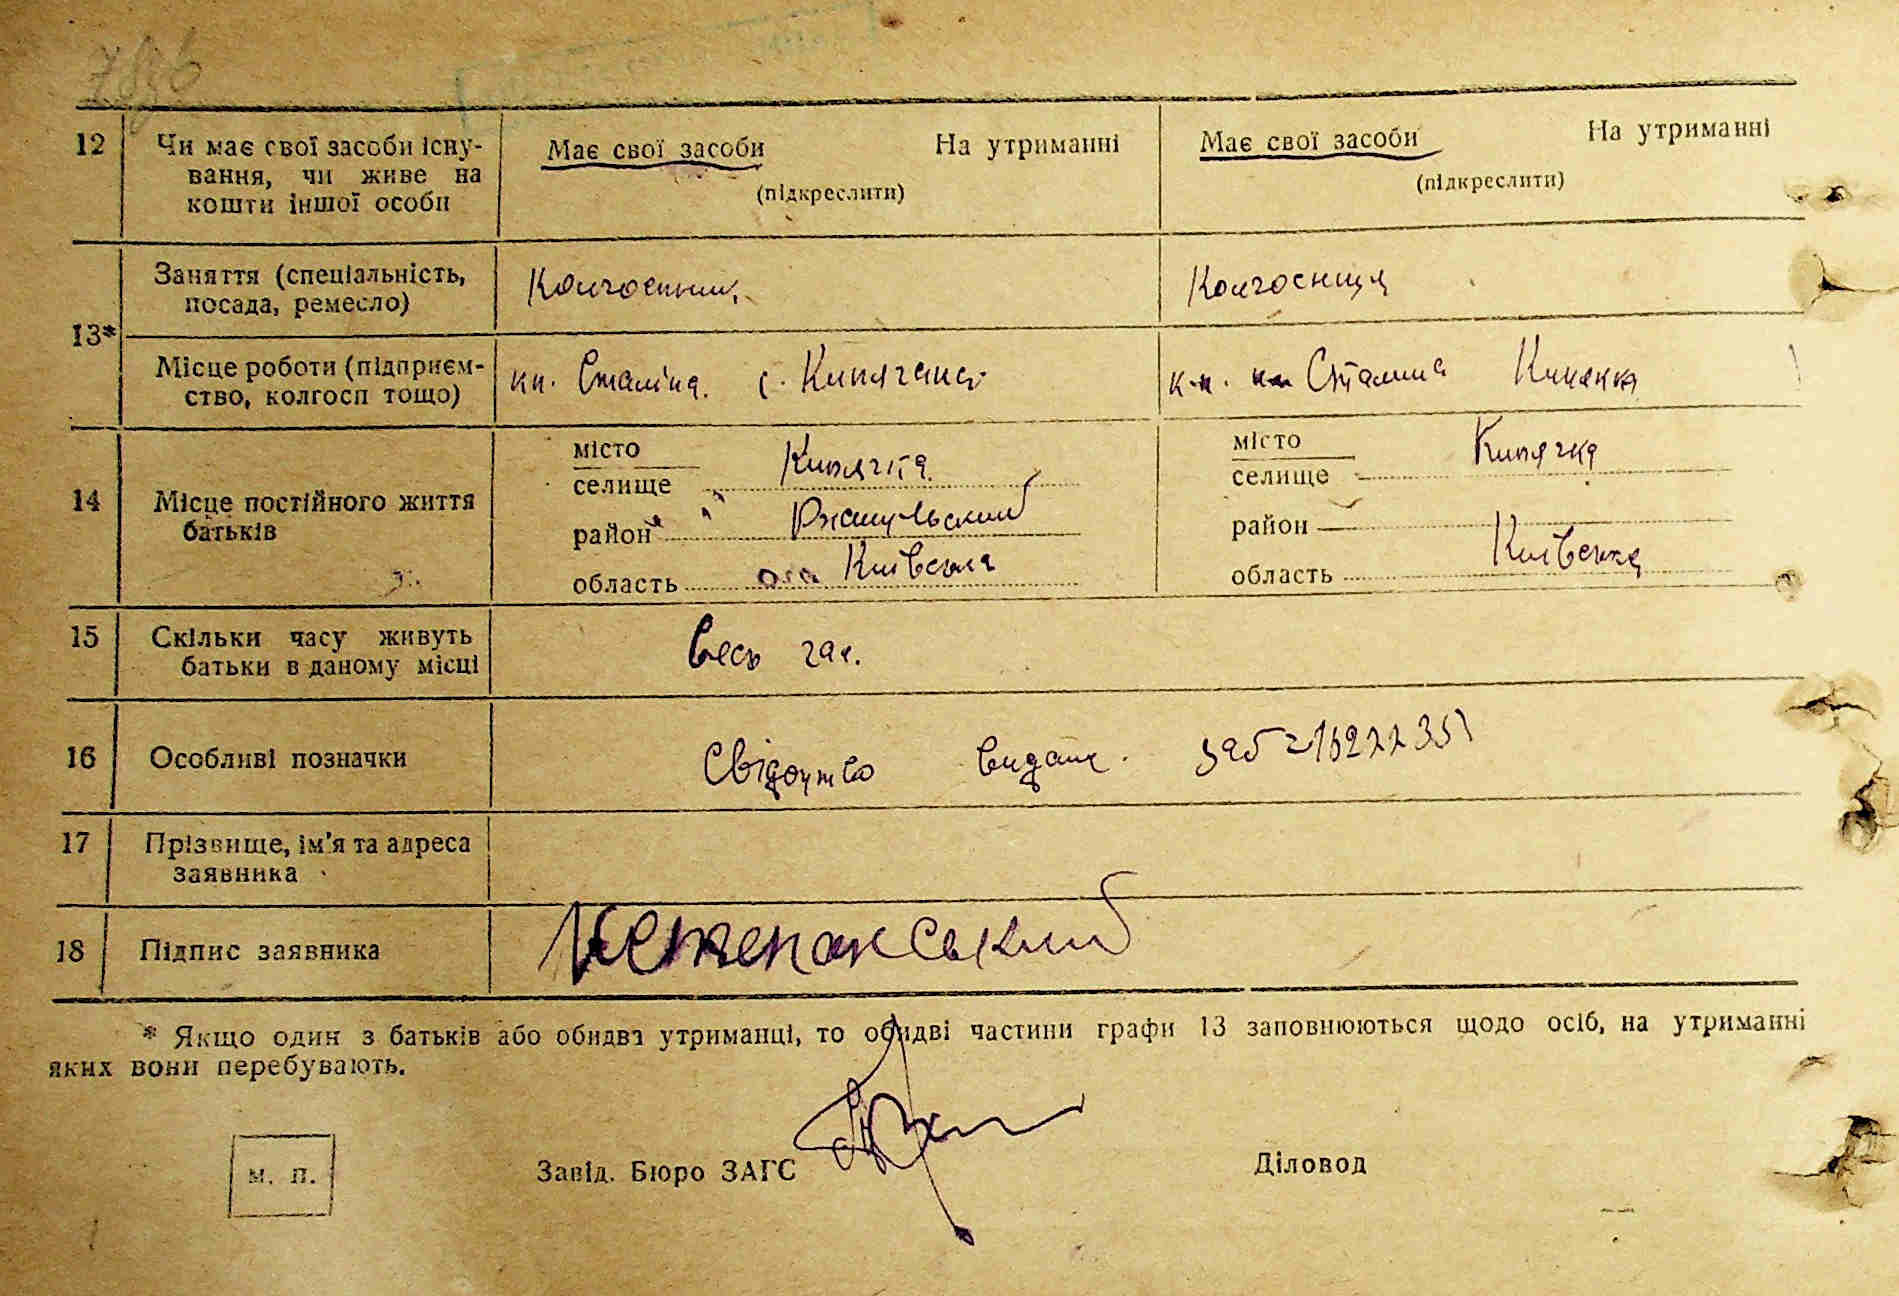 7886
12 Чи має свої засоби існу-
вання, чи живе на
кошти іншої особи
Має свої засоби На утриманні
(підкреслити)
Має свої засоби На утриманні
(підкреслити)
13*
Заняття (спеціальність,
посада, ремесло)
Колгоспник
Колгосниця
Місце роботи (підприєм-
ство, колгосп тощо)
кп. Сталіна. с.
к-п. Сталина
14 Місце постійного життя
батьків
місто
селище Кипячка
район
область Київська
місто
селище Кипячка
район
область Київська
15 Скільки часу живуть
батьки в даному місці
Весь час.
16 Особливі позначки
Свідоцтво видане.
17 Прізвище, ім'я та адреса
заявника
18 Підпис заявника
* Якщо один з батьків або обидва утриманці, то обидві частини графи 13 заповнюються щодо осіб, на утриманні
яких вони перебувають.
м. п.
Завід. Бюро ЗАГС
Діловод